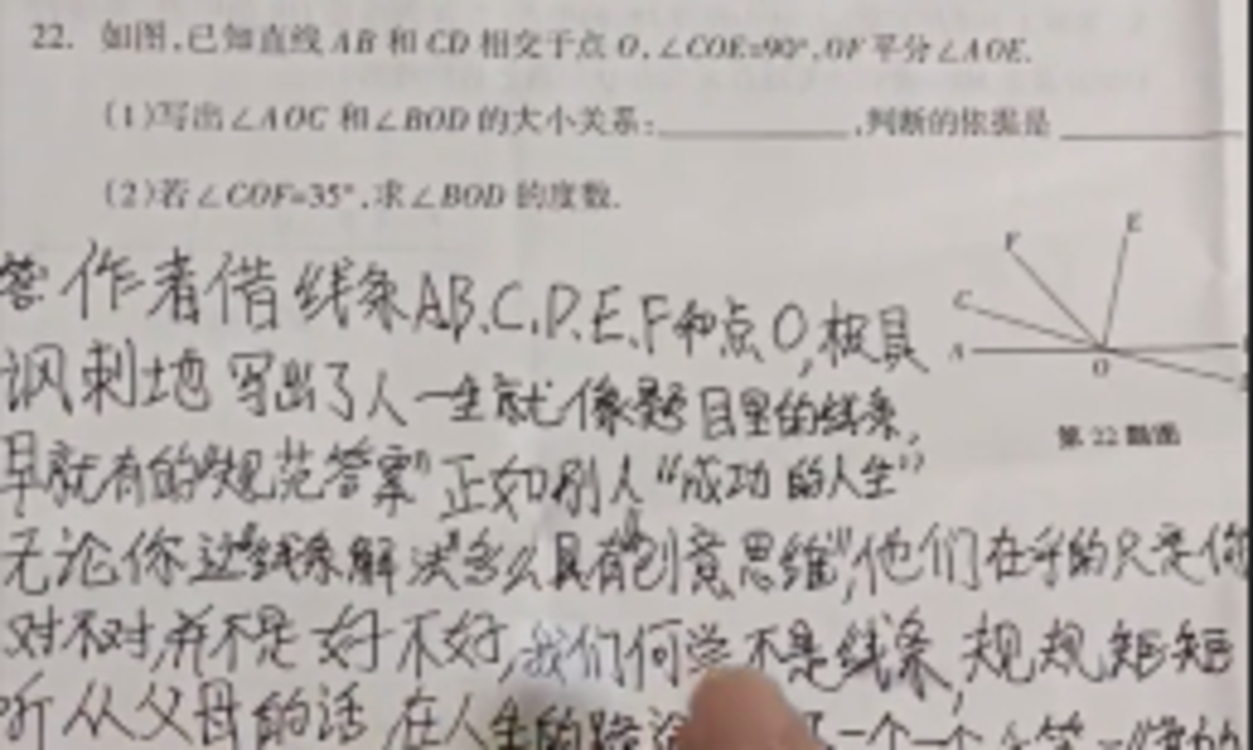 22. 如图,已知直线 AB 和 CD 相交于点 O,∠COE=90°,OF平分∠AOE.
(1)写出∠AOC 和∠BOD 的大小关系:__________,判断的依据是__________
(2)若∠COF=35°,求∠BOD 的度数.
答作者借线条AB、C、D、E、F和点O,极具
讽刺地写出了人一生就像题目里的线条,
早就有的"规范答案"正如别人"成功的人生"
无论你这"线条解法"多么具有"创意思维",他们在乎的只是你
对不对,并不是好不好,我们何尝不是线条,规规矩矩
听从父母的话,在人生的路
一个一个
F
E
C
A
O
第 22 题图